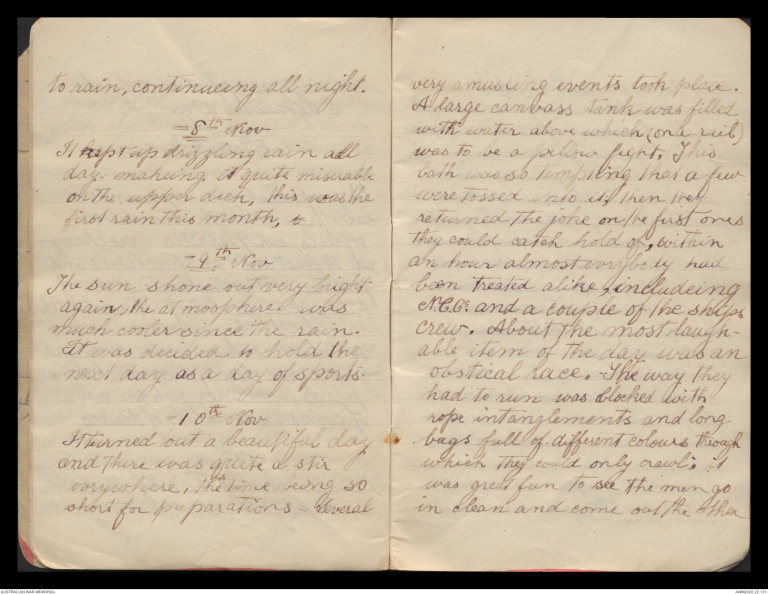 to rain, continueing all night.
- 8th Nov
It kept up drizzling rain all
day. making it quite miserable
on the upper deck, this was the
first rain this month,
- 9th Nov
The sun shone out very bright
again, the atmosphere was
much cooler since the rain.
It was decided to hold the
next day as a day of sports.
- 10th Nov
It turned out a beautiful day
and there was quite a stir
evrywhere, the time being so
short for preparations - Several
very amuseing events took place.
A large canvass tank was filled
with water above which (on a rib)
was to be a pillow fight. This
bath was so tempting that a few
were tossed into it, then they
returned the joke on the first ones
they could catch hold of, within
an hour almost evrybody had
been treated alike, includeing
N.C.Os. and a couple of the ships
crew. About the most laugh-
able item of the day was an
obstical race. The way they
had to run was blocked with
rope intanglements and long
bags full of different colours through
which they could only crawl; it
was great fun to see the men go
in clean and come out the other
AUSTRALIAN WAR MEMORIAL